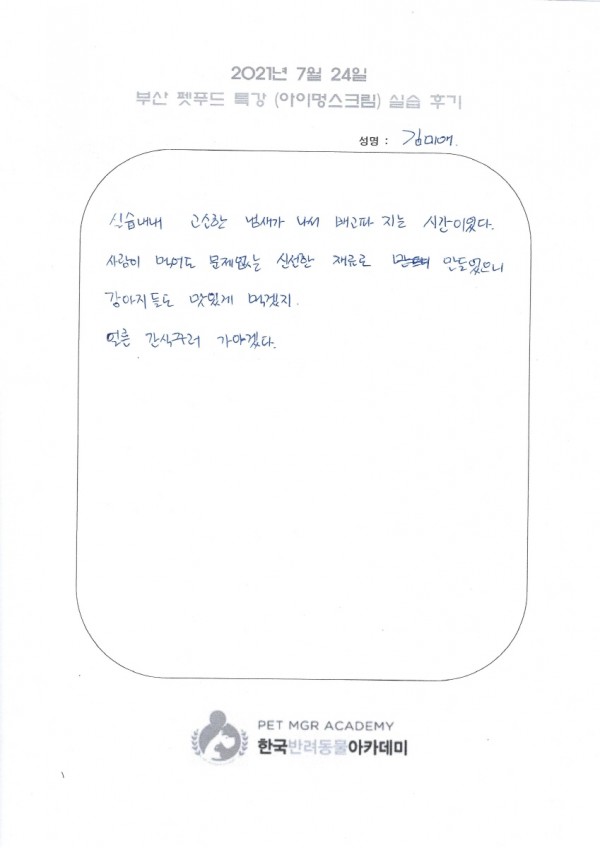 2021년 7월 24일
부산 펫푸드 특강 (아이멍스크림) 실습 후기
성명 : 김미애.
실습내내 고소한 냄새가 나서 배고파 지는 시간이었다.
사람이 먹어도 문제없는 신선한 재료로 만들었으니
강아지들도 맛있게 먹겠지.
얼른 간식주러 가야겠다.
PET MGR ACADEMY
한국반려동물아카데미